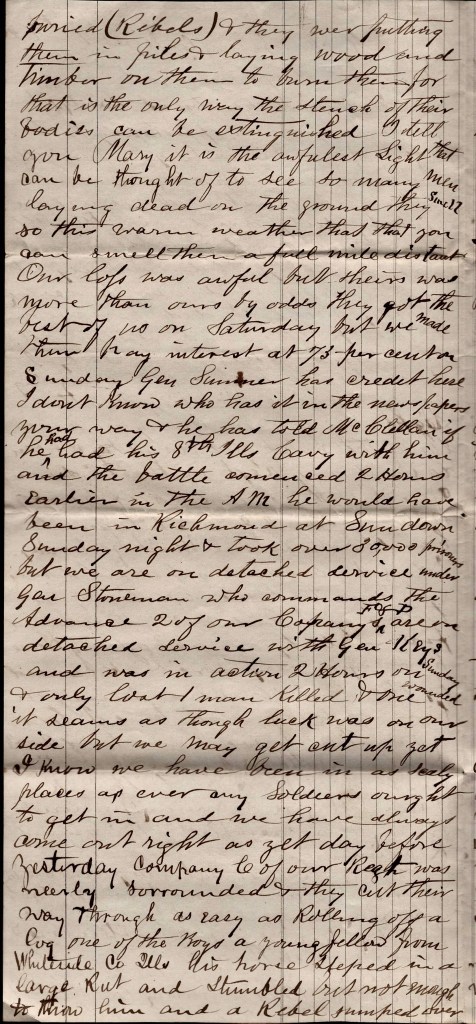 buried (Rebels) & they wer putting
them in piles & laying wood and
timber on them to burn them for
that is the only way the stench of their
bodies can be extinguished I tell
you Mary it is the awfulest Sight that
can be thought of to see so many Men
laying dead on the ground they
so this warm weather that that you
can smell them a full mile distant
Our loss was awful but theirs was
more than ours by odds they got the
best of us on Saturday but we made
them pay interest at 73 per cent on
Sunday Gen Sumner has credit here
I dont know who has it in the newspapers
your way & he has told McClellan if
he had had his 8th Ills Cavy with him
and the battle comenced 2 Hours
earlier in the A M he would have
been in Richmond at Sundown
Sunday night & took over 30000 prisners
but we are on detached service under
Gen Stoneman who commands the
Advance 2 of our Companys F & D are on
detached service with Gen Keys
and was in action 2 Hours on Sunday
& only lost 1 man Killed & one wounded
it seams as though luck was on our
side but we may get cut up yet
I know we have been in as scaly
places as ever any Soldiers ought
to get in and we have always
come out right as yet day before
yesturday Company C of our Regt was
neerly sorrounded & they cut their
way through as easy as Rolling off a
Log one of the boys a young fellow from
Whiteside Co Ills his horse steped in a
large Rut and stumbled but not enough
to throw him and a Rebel jumped over